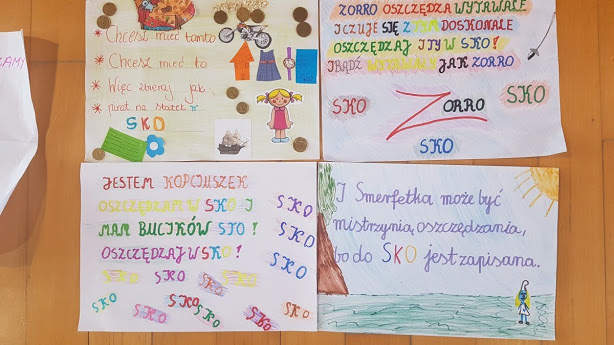 AMY
* Chcesz mieć tamto
* Chcesz mieć to
* Więc zbieraj jak
* pirat na statek w
SKO
ZORRO OSZCZĘDZA WYTRWALE
I CZUJE SIĘ Z TYM DOSKONALE
OSZCZĘDZAJ I TY W SKO!
I BĄDŹ WYTRWAŁY JAK ZORRO
SKO
ZORRO
SKO
SKO
JESTEM KOPCIUSZEK
OSZCZĘDZAM W SKO I
MAM BUCIKÓW STO!
OSZCZĘDZAJ W SKO!
SKO
SKO
SKO
SKO
SKO
SKO
SKO
SKO
SKO
SKO
SKO
SKO
SKO
I Smerfetka może być
mistrzynią oszczędzania,
bo do SKO jest zapisana.